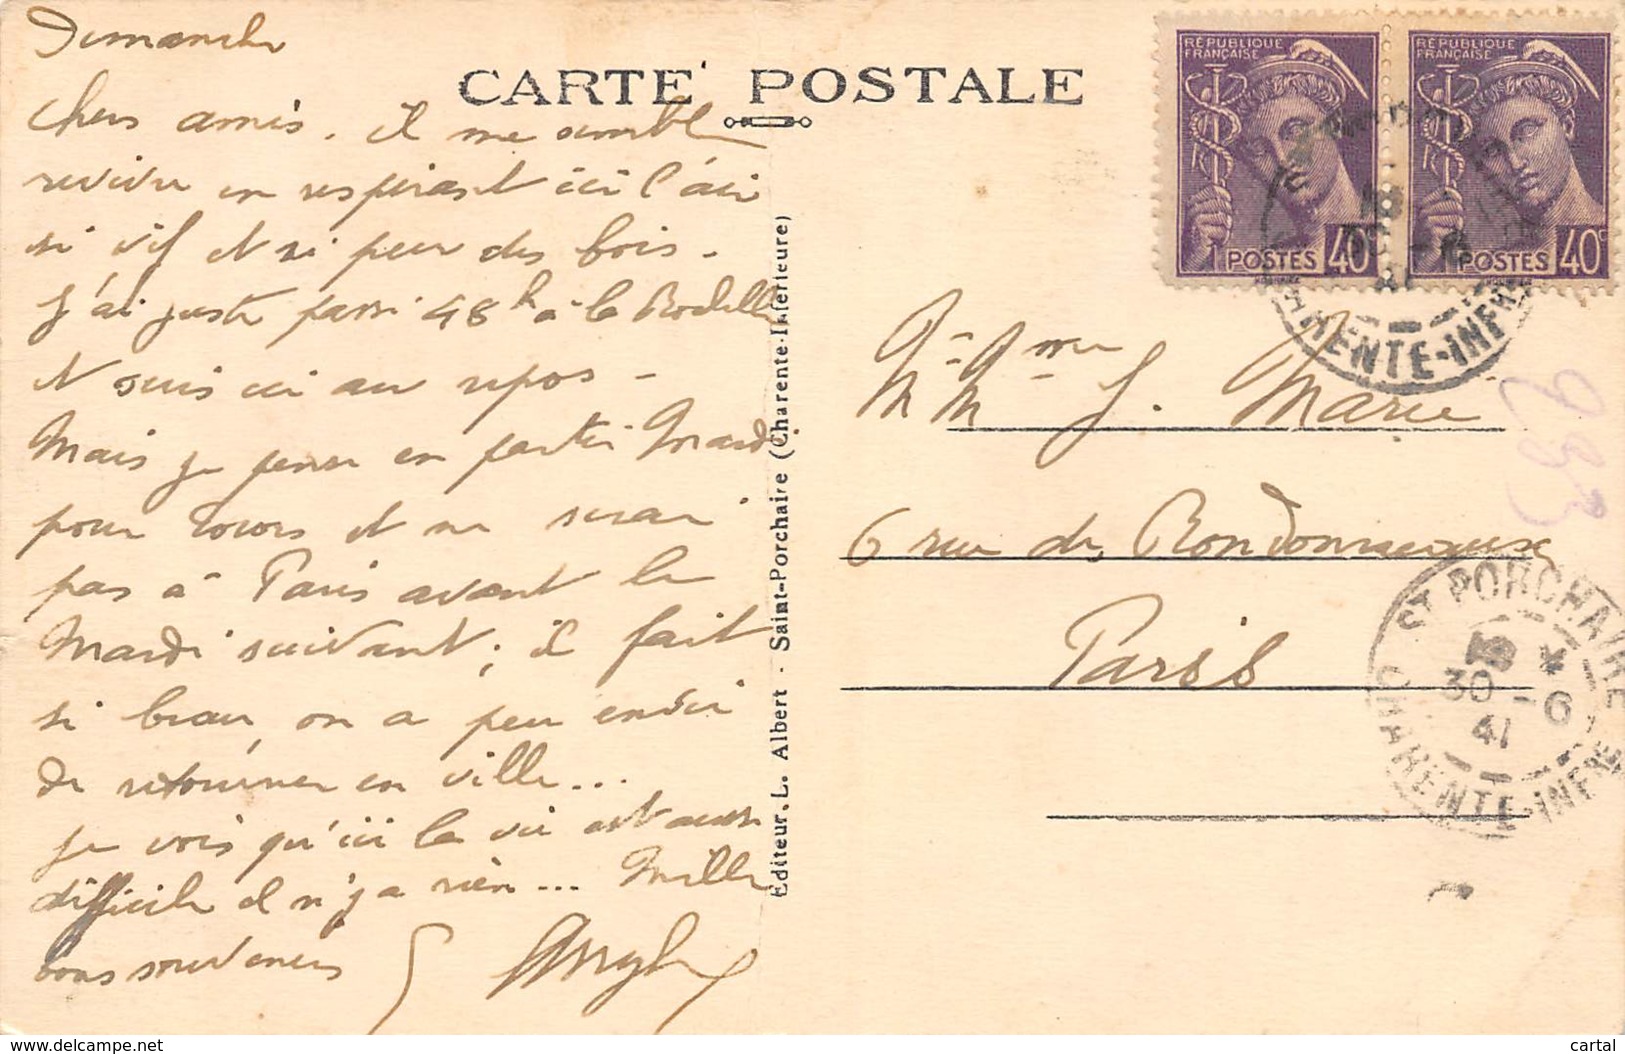 Dimanche
Chers amis. il me semble
revivre en respirant ici l'air
si vif et si pur des bois.
J'ai juste passé 48h à la Rochelle
et suis ici au repos -
Mais je pense en partir Mardi
pour Tours et ne serai
pas à Paris avant le
Mardi suivant; il fait
si beau, on a peu envie
de retourner en ville...
je vois qu'ici la vie est aussi
difficile il n'y a rien... Mille
bons souvenirs
CARTE POSTALE
Editeur. L. Albert - Saint-Porchaire (Charente-Inférieure)
RÉPUBLIQUE FRANÇAISE
POSTES 40c
RÉPUBLIQUE FRANÇAISE
POSTES 40c
CHARENTE-INFRE
J. Marie
6 rue de
Paris
ST PORCHAIRE
30 - 6
41
CHARENTE-INFRE
delcampe.net
cartal